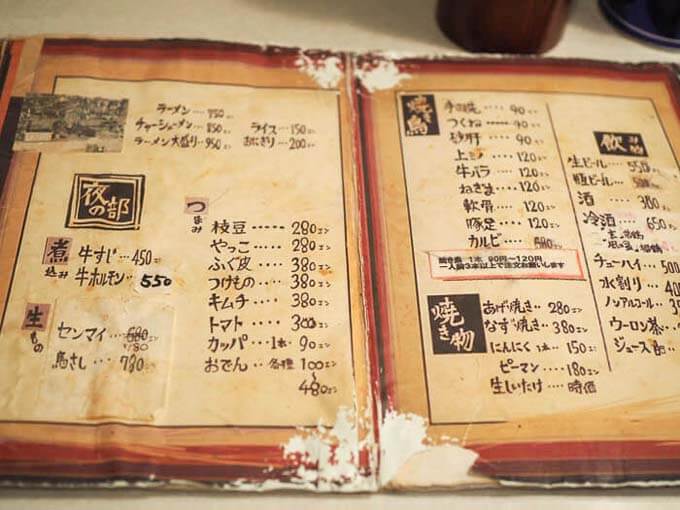 ラーメン・・・・750
チャーシューメン・・・850
ラーメン大盛り・・950
ライス・・・150エン
おにぎり・・・200エン
夜の部
煮込み
牛すじ・・・450エン
牛ホルモン・・550
生もの
センマイ・・680エン
780
鳥さし・・・780エン
つまみ
枝豆・・・・・280エン
やっこ・・・・280エン
ふぐ皮・・・・280エン
つけもの・・・280エン
キムチ・・・・280エン
トマト・・・・300エン
カッパ・・1本・90エン
おでん・・各種 100エン
〜
480エン
焼き鳥
90エン
つくね・・・・・90エン
砂肝・・・・90エン
120エン
牛バラ・・・120エン
ねぎま・・・120エン
軟骨・・・120エン
豚足・・・120エン
カルビ・・・680エン
焼き鳥 1本 90円〜120円
一人前3本以上で注文お願いします
焼き物
あげ焼き・・280エン
なす焼き・・380エン
にんにく 1本・・150エン
ピーマン・・・180エン
生しいたけ・・時価
飲み物
生ビール・・550
瓶ビール・・
酒・・・・380
冷酒・・・650
チューハイ・・・500
水割り・・・400
ノンアルコール・・
ウーロン茶・・
ジュース